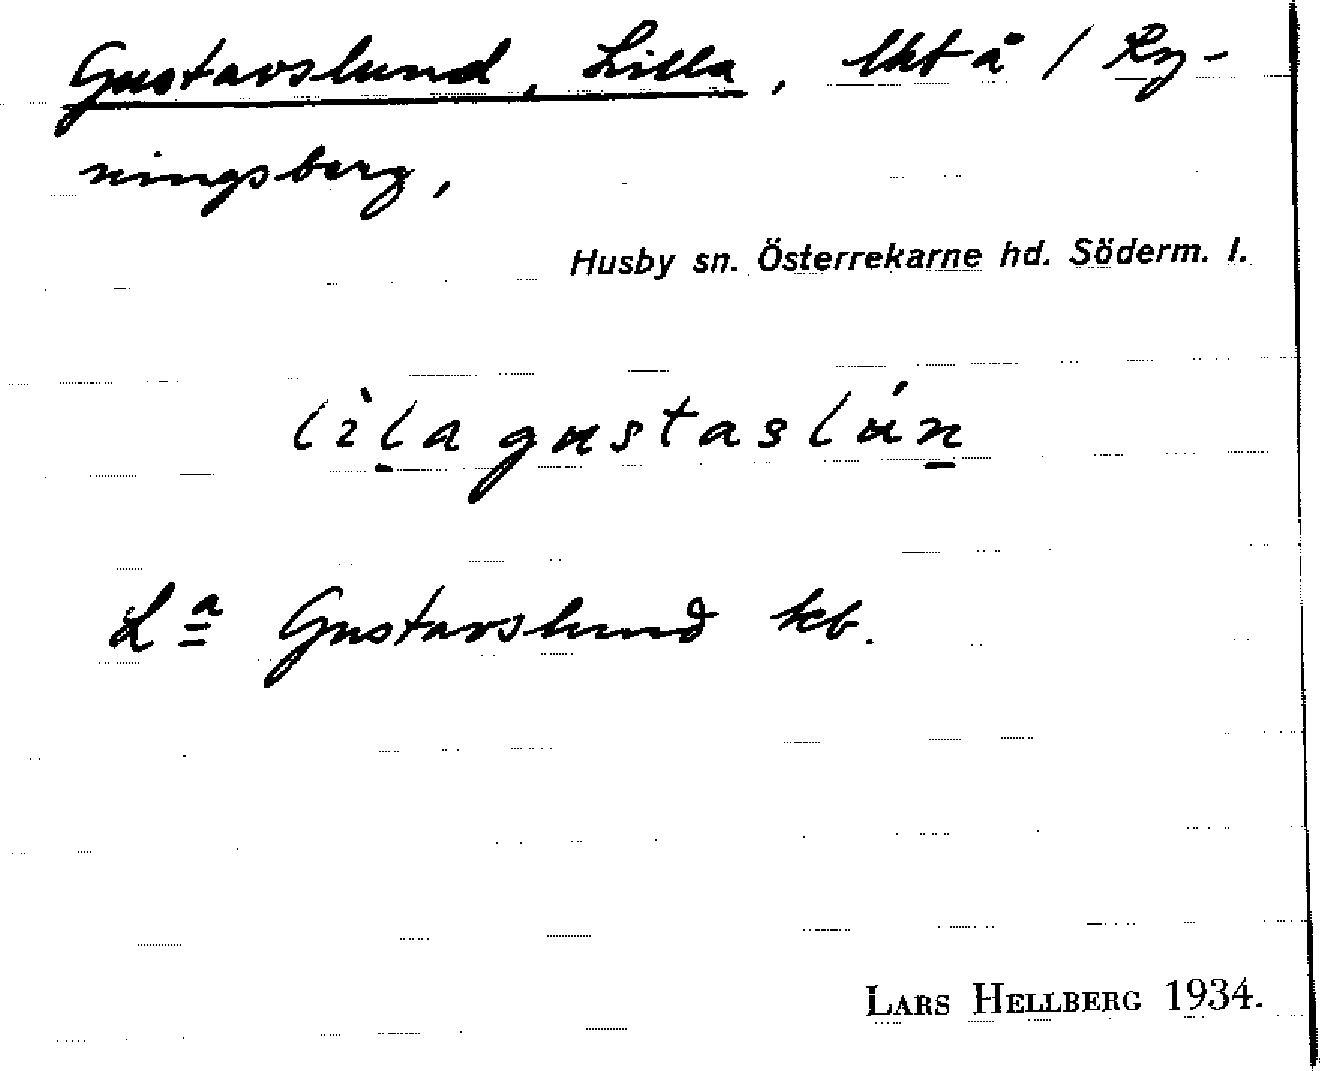 Gustavslund, Lilla, lht å / Ry-
ningsberg,
Husby sn. Österrekarne hd. Söderm. l.
lìḻa gustaslúṉ
L<u>a</u> Gustavslund kb.
LARS HELLBERG 1934.